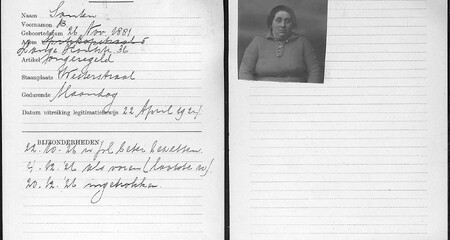 Naam Souten
Voornamen B.
Geboortedatum 26 Nov. 1881
Adres
Lange Houtstr. 36
Artikel ongeregeld
Staanplaats Westerstraat
Gedurende Maandag
Datum uitreiking legitimatiebewijs 22 April 1924
BIJZONDERHEDEN
22.10.26 beter bezetten.
4.12.26 als voren (laatste w).
20.12.26 ingetrokken.